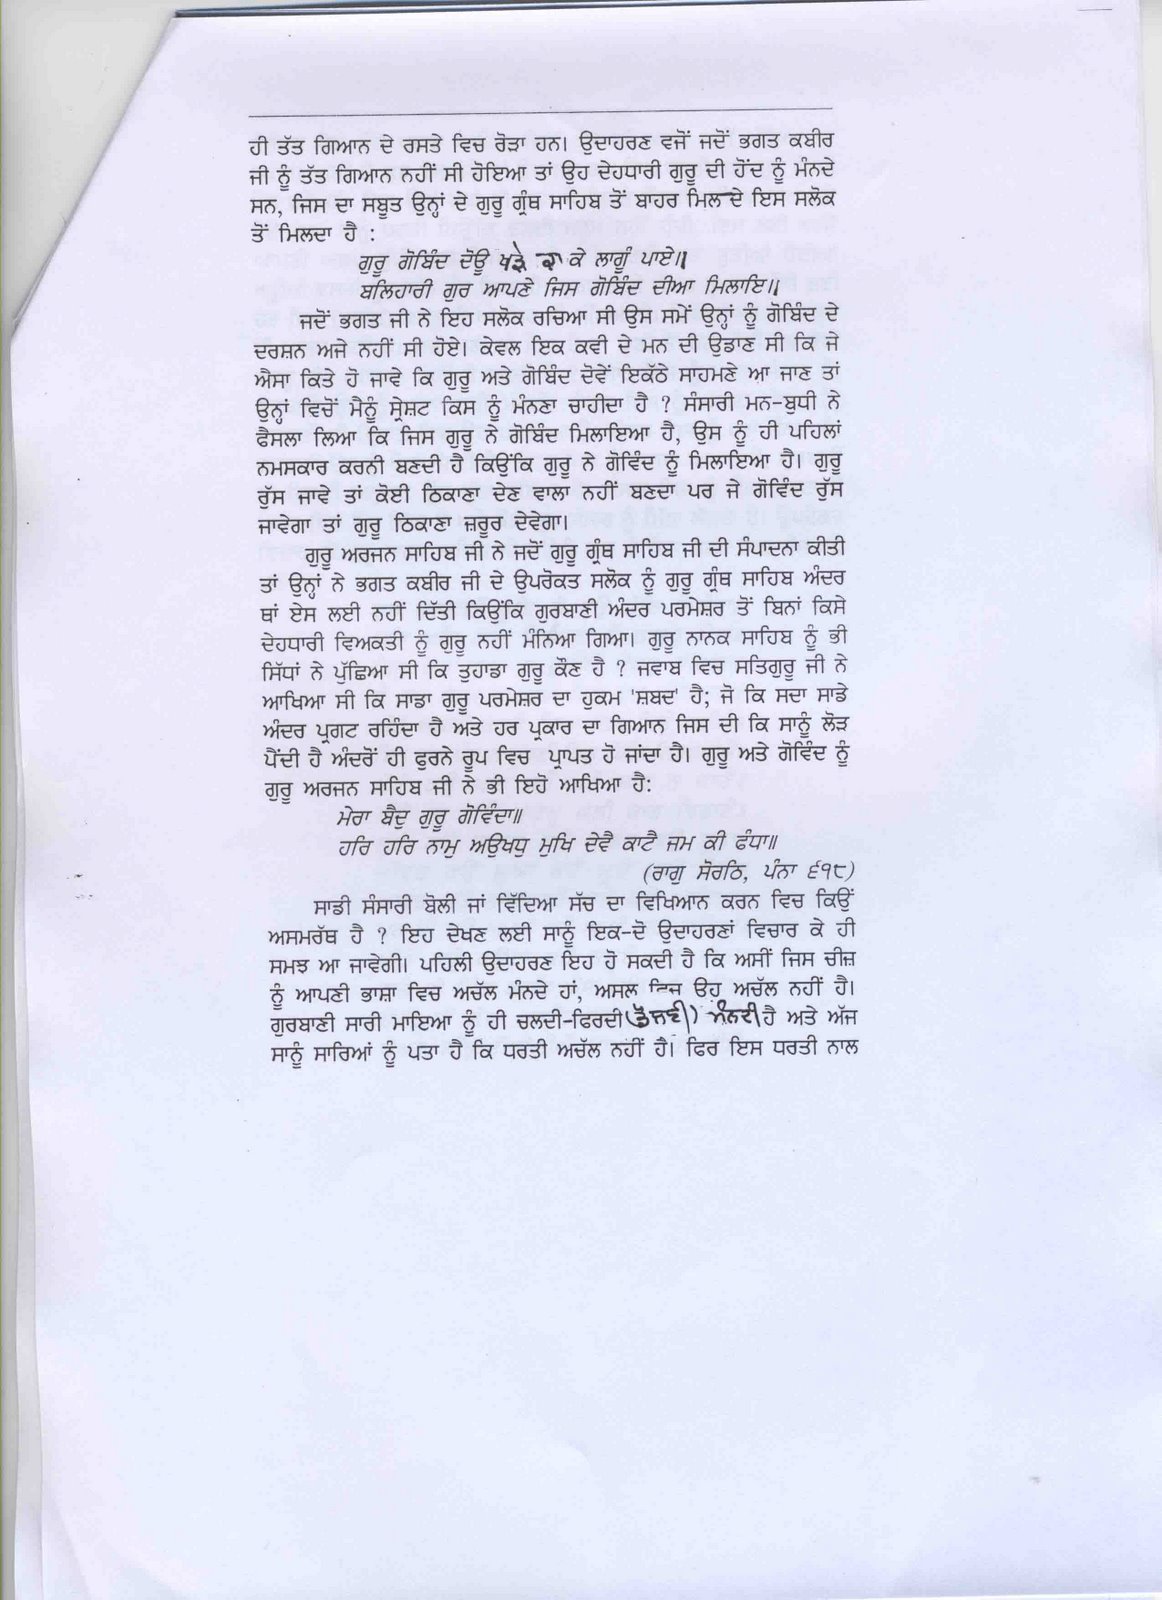 ਹੀ ਤੱਤ ਗਿਆਨ ਦੇ ਰਸਤੇ ਵਿਚ ਰੋੜਾ ਹਨ। ਉਦਾਹਰਣ ਵਜੋਂ ਜਦੋਂ ਭਗਤ ਕਬੀਰ
ਜੀ ਨੂੰ ਤੱਤ ਗਿਆਨ ਨਹੀਂ ਸੀ ਹੋਇਆ ਤਾਂ ਉਹ ਦੇਹਧਾਰੀ ਗੁਰੂ ਦੀ ਹੋਂਦ ਨੂੰ ਮੰਨਦੇ
ਸਨ, ਜਿਸ ਦਾ ਸਬੂਤ ਉਨ੍ਹਾਂ ਦੇ ਗੁਰੂ ਗ੍ਰੰਥ ਸਾਹਿਬ ਤੋਂ ਬਾਹਰ ਮਿਲਦੇ ਇਸ ਸਲੋਕ
ਤੋਂ ਮਿਲਦਾ ਹੈ :
ਗੁਰੂ ਗੋਬਿੰਦ ਦੋਊ ਖੜੇ ਕਾ ਕੇ ਲਾਗੂੰ ਪਾਏ॥
ਬਲਿਹਾਰੀ ਗੁਰ ਆਪਣੇ ਜਿਸ ਗੋਬਿੰਦ ਦੀਆ ਮਿਲਾਇ॥
ਜਦੋਂ ਭਗਤ ਜੀ ਨੇ ਇਹ ਸਲੋਕ ਰਚਿਆ ਸੀ ਉਸ ਸਮੇਂ ਉਨ੍ਹਾਂ ਨੂੰ ਗੋਬਿੰਦ ਦੇ
ਦਰਸ਼ਨ ਅਜੇ ਨਹੀਂ ਸੀ ਹੋਏ। ਕੇਵਲ ਇਕ ਕਵੀ ਦੇ ਮਨ ਦੀ ਉਡਾਣ ਸੀ ਕਿ ਜੇ
ਐਸਾ ਕਿਤੇ ਹੋ ਜਾਵੇ ਕਿ ਗੁਰੂ ਅਤੇ ਗੋਬਿੰਦ ਦੋਵੇਂ ਇਕੱਠੇ ਸਾਹਮਣੇ ਆ ਜਾਣ ਤਾਂ
ਉਨ੍ਹਾਂ ਵਿਚੋਂ ਮੈਨੂੰ ਸ੍ਰੇਸ਼ਟ ਕਿਸ ਨੂੰ ਮੰਨਣਾ ਚਾਹੀਦਾ ਹੈ ? ਸੰਸਾਰੀ ਮਨ-ਬੁਧੀ ਨੇ
ਫੈਸਲਾ ਲਿਆ ਕਿ ਜਿਸ ਗੁਰੂ ਨੇ ਗੋਬਿੰਦ ਮਿਲਾਇਆ ਹੈ, ਉਸ ਨੂੰ ਹੀ ਪਹਿਲਾਂ
ਨਮਸਕਾਰ ਕਰਨੀ ਬਣਦੀ ਹੈ ਕਿਉਂਕਿ ਗੁਰੂ ਨੇ ਗੋਵਿੰਦ ਨੂੰ ਮਿਲਾਇਆ ਹੈ। ਗੁਰੂ
ਰੁੱਸ ਜਾਵੇ ਤਾਂ ਕੋਈ ਠਿਕਾਣਾ ਦੇਣ ਵਾਲਾ ਨਹੀਂ ਬਣਦਾ ਪਰ ਜੇ ਗੋਵਿੰਦ ਰੁੱਸ
ਜਾਵੇਗਾ ਤਾਂ ਗੁਰੂ ਠਿਕਾਣਾ ਜ਼ਰੂਰ ਦੇਵੇਗਾ।
ਗੁਰੂ ਅਰਜਨ ਸਾਹਿਬ ਜੀ ਨੇ ਜਦੋਂ ਗੁਰੂ ਗ੍ਰੰਥ ਸਾਹਿਬ ਜੀ ਦੀ ਸੰਪਾਦਨਾ ਕੀਤੀ
ਤਾਂ ਉਨ੍ਹਾਂ ਨੇ ਭਗਤ ਕਬੀਰ ਜੀ ਦੇ ਉਪਰੋਕਤ ਸਲੋਕ ਨੂੰ ਗੁਰੂ ਗ੍ਰੰਥ ਸਾਹਿਬ ਅੰਦਰ
ਥਾਂ ਏਸ ਲਈ ਨਹੀਂ ਦਿੱਤੀ ਕਿਉਂਕਿ ਗੁਰਬਾਣੀ ਅੰਦਰ ਪਰਮੇਸ਼ਰ ਤੋਂ ਬਿਨਾਂ ਕਿਸੇ
ਦੇਹਧਾਰੀ ਵਿਅਕਤੀ ਨੂੰ ਗੁਰੂ ਨਹੀਂ ਮੰਨਿਆ ਗਿਆ। ਗੁਰੂ ਨਾਨਕ ਸਾਹਿਬ ਨੂੰ ਭੀ
ਸਿੱਧਾਂ ਨੇ ਪੁੱਛਿਆ ਸੀ ਕਿ ਤੁਹਾਡਾ ਗੁਰੂ ਕੌਣ ਹੈ ? ਜਵਾਬ ਵਿਚ ਸਤਿਗੁਰੂ ਜੀ ਨੇ
ਆਖਿਆ ਸੀ ਕਿ ਸਾਡਾ ਗੁਰੂ ਪਰਮੇਸ਼ਰ ਦਾ ਹੁਕਮ 'ਸ਼ਬਦ' ਹੈ; ਜੋ ਕਿ ਸਦਾ ਸਾਡੇ
ਅੰਦਰ ਪ੍ਰਗਟ ਰਹਿੰਦਾ ਹੈ ਅਤੇ ਹਰ ਪ੍ਰਕਾਰ ਦਾ ਗਿਆਨ ਜਿਸ ਦੀ ਕਿ ਸਾਨੂੰ ਲੋੜ
ਪੈਂਦੀ ਹੈ ਅੰਦਰੋਂ ਹੀ ਫੁਰਨੇ ਰੂਪ ਵਿਚ ਪ੍ਰਾਪਤ ਹੋ ਜਾਂਦਾ ਹੈ। ਗੁਰੂ ਅਤੇ ਗੋਵਿੰਦ ਨੂੰ
ਗੁਰੂ ਅਰਜਨ ਸਾਹਿਬ ਜੀ ਨੇ ਭੀ ਇਹੋ ਆਖਿਆ ਹੈ:
ਮੇਰਾ ਬੈਦੁ ਗੁਰੂ ਗੋਵਿੰਦਾ॥
ਹਰਿ ਹਰਿ ਨਾਮੁ ਅਉਖਧੁ ਮੁਖਿ ਦੇਵੈ ਕਾਟੈ ਜਮ ਕੀ ਫੰਧਾ॥
(ਰਾਗੁ ਸੋਰਠਿ, ਪੰਨਾ ੬੧੮)
ਸਾਡੀ ਸੰਸਾਰੀ ਬੋਲੀ ਜਾਂ ਵਿੱਦਿਆ ਸੱਚ ਦਾ ਵਿਖਿਆਨ ਕਰਨ ਵਿਚ ਕਿਉਂ
ਅਸਮਰੱਥ ਹੈ ? ਇਹ ਦੇਖਣ ਲਈ ਸਾਨੂੰ ਇਕ-ਦੋ ਉਦਾਹਰਣਾਂ ਵਿਚਾਰ ਕੇ ਹੀ
ਸਮਝ ਆ ਜਾਵੇਗੀ। ਪਹਿਲੀ ਉਦਾਹਰਣ ਇਹ ਹੋ ਸਕਦੀ ਹੈ ਕਿ ਅਸੀਂ ਜਿਸ ਚੀਜ਼
ਨੂੰ ਆਪਣੀ ਭਾਸ਼ਾ ਵਿਚ ਅਚੱਲ ਮੰਨਦੇ ਹਾਂ, ਅਸਲ ਵਿਚ ਉਹ ਅਚੱਲ ਨਹੀਂ ਹੈ।
ਗੁਰਬਾਣੀ ਸਾਰੀ ਮਾਇਆ ਨੂੰ ਹੀ ਚਲਦੀ-ਫਿਰਦੀ ਮੰਨਦੀ ਹੈ ਅਤੇ ਅੱਜ
ਸਾਨੂੰ ਸਾਰਿਆਂ ਨੂੰ ਪਤਾ ਹੈ ਕਿ ਧਰਤੀ ਅਚੱਲ ਨਹੀਂ ਹੈ। ਫਿਰ ਇਸ ਧਰਤੀ ਨਾਲ